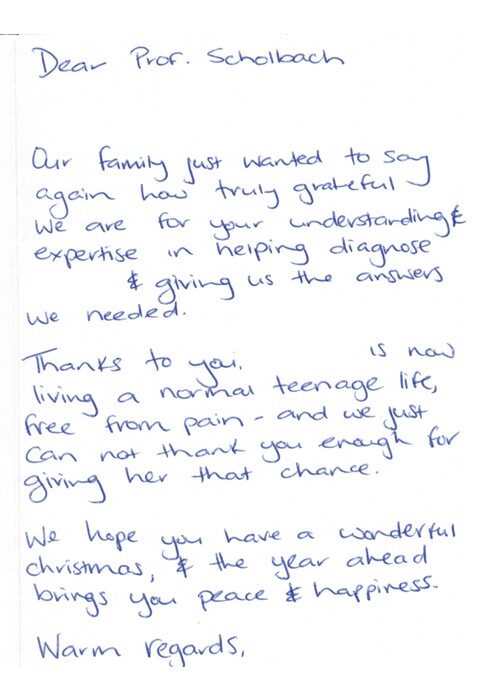 Dear Prof. Scholbach
Our family just wanted to say
again how truly grateful
we are for your understanding &
expertise in helping diagnose
& giving us the answers
we needed.
Thanks to you, is now
living a normal teenage life,
free from pain - and we just
can not thank you enough for
giving her that chance.
We hope you have a wonderful
christmas, & the year ahead
brings you peace & happiness.
Warm regards,